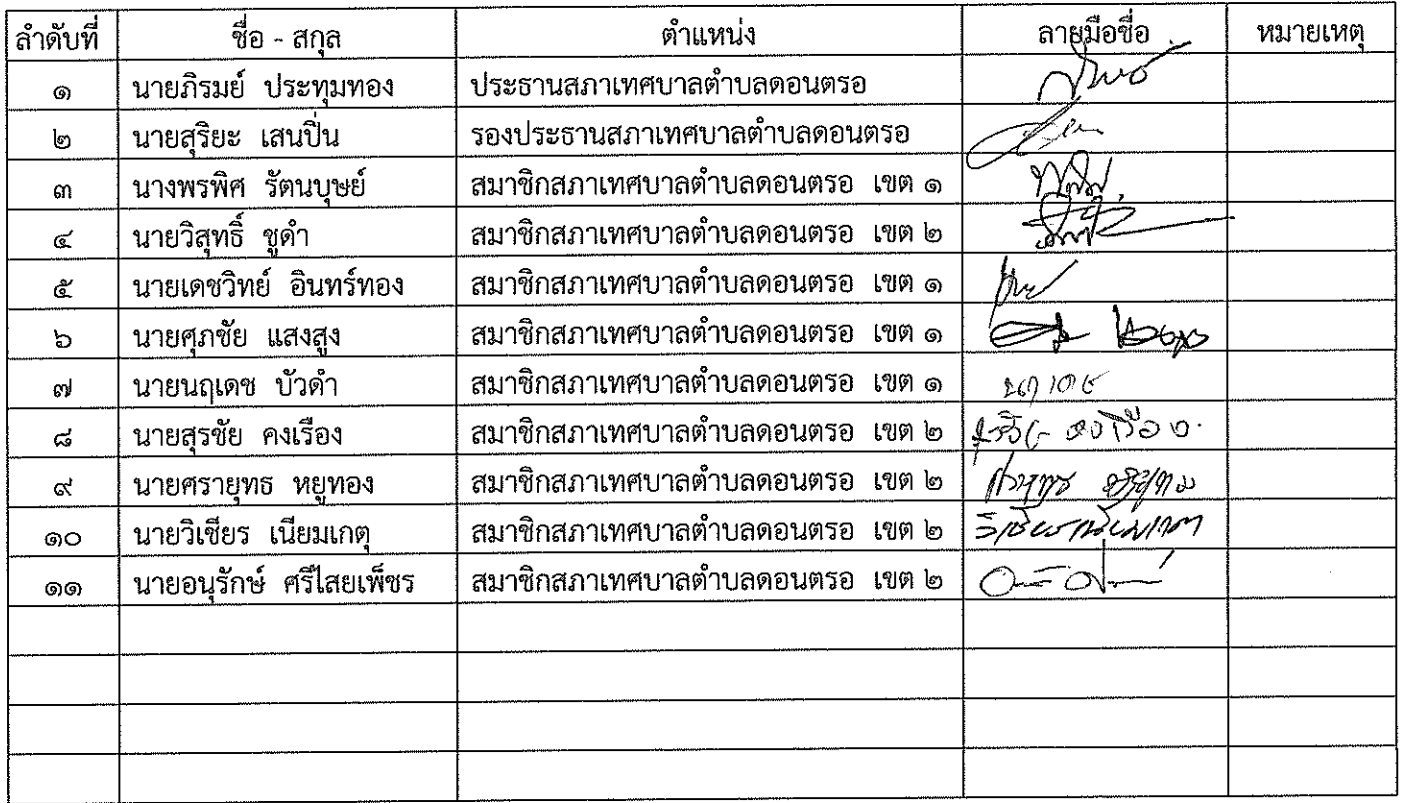 ลำดับที่ ชื่อ - สกุล ตำแหน่ง ลายมือชื่อ หมายเหตุ
๑ นายภิรมย์ ประทุมทอง ประธานสภาเทศบาลตำบลดอนตรอ
๒ นายสุริยะ เสนปิ่น รองประธานสภาเทศบาลตำบลดอนตรอ
๓ นางพรพิศ รัตนบุษย์ สมาชิกสภาเทศบาลตำบลดอนตรอ เขต ๑
๔ นายวิสุทธิ์ ชูดำ สมาชิกสภาเทศบาลตำบลดอนตรอ เขต ๒
๕ นายเดชวิทย์ อินทร์ทอง สมาชิกสภาเทศบาลตำบลดอนตรอ เขต ๑
๖ นายศุภชัย แสงสูง สมาชิกสภาเทศบาลตำบลดอนตรอ เขต ๑
๗ นายนฤเดช บัวดำ สมาชิกสภาเทศบาลตำบลดอนตรอ เขต ๑ นฤเดช
๘ นายสุรชัย คงเรือง สมาชิกสภาเทศบาลตำบลดอนตรอ เขต ๒ สุรชัย คงเรือง
๙ นายศรายุทธ หยูทอง สมาชิกสภาเทศบาลตำบลดอนตรอ เขต ๒
๑๐ นายวิเชียร เนียมเกตุ สมาชิกสภาเทศบาลตำบลดอนตรอ เขต ๒ วิเชียร เนียมเกตุ
๑๑ นายอนุรักษ์ ศรีไสยเพ็ชร สมาชิกสภาเทศบาลตำบลดอนตรอ เขต ๒